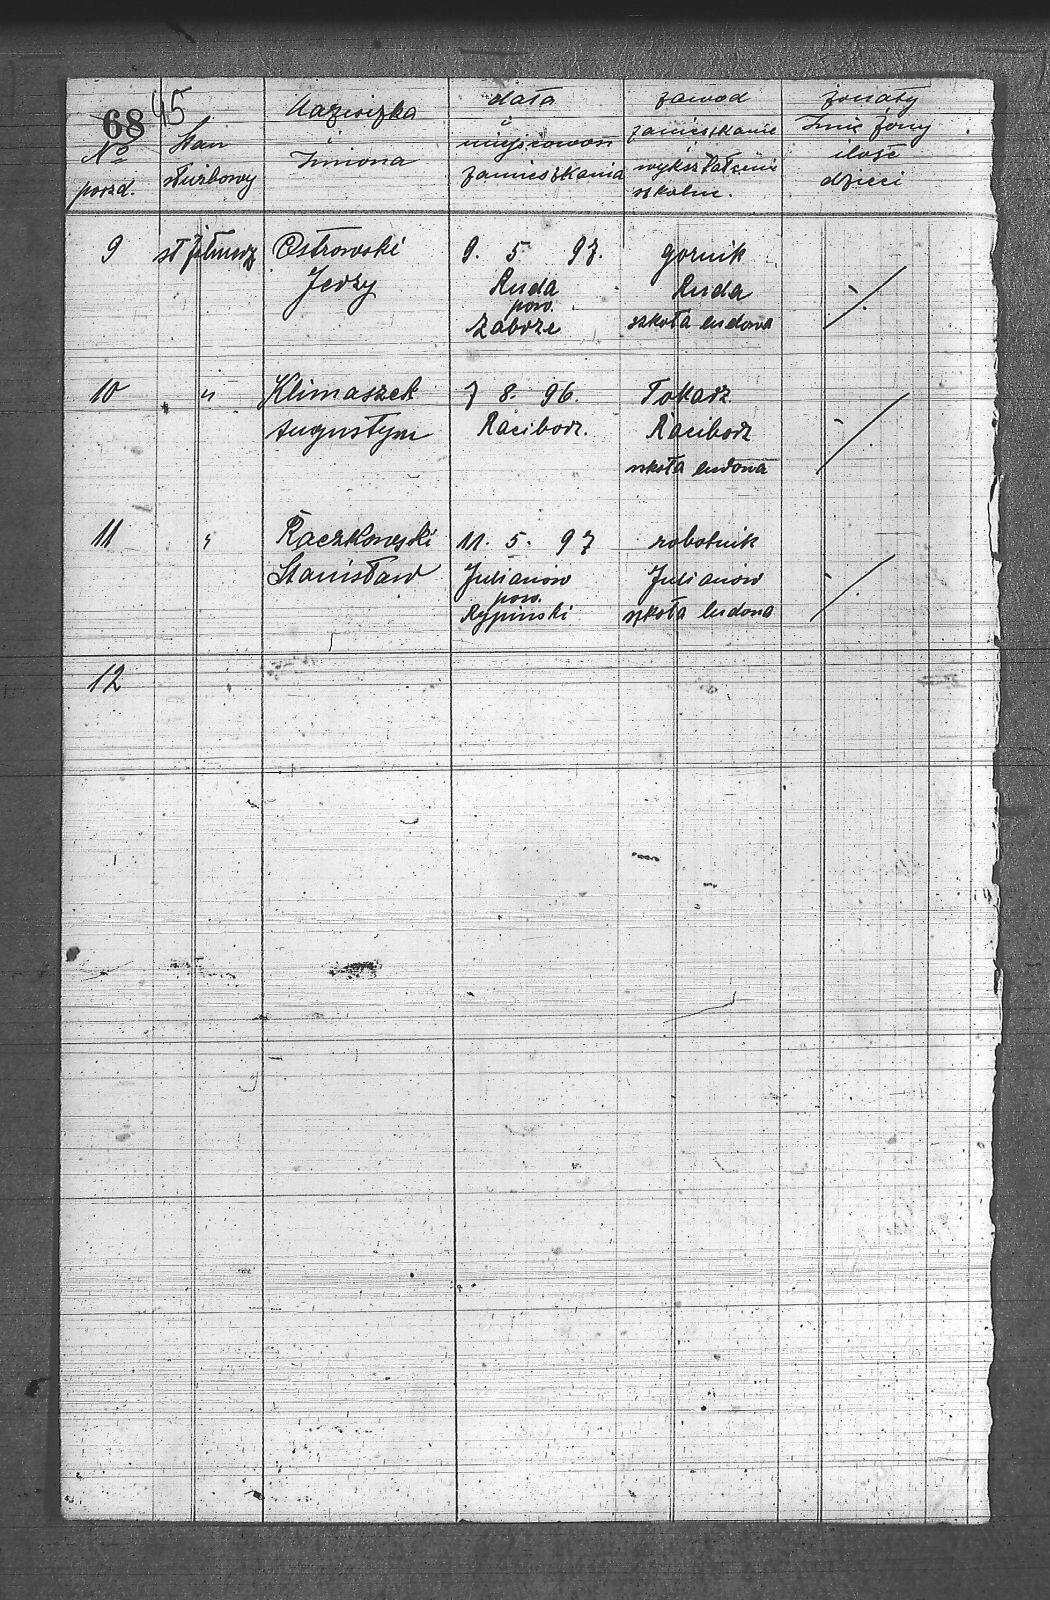 68 45
No porzd.
Stan służbowy
Nazwizka
i
Imiona
data
i
miejscowość
zamieszkania
zawód
zamieszkanie
wykształcenie
szkolne.
żonaty
Imie żony
ilość
dzieci
9 st żołnierz Ostrowski 9. 5 97. gornik
Jerzy Ruda Ruda
pow.
Zabrze szkoła ludowa
10 " Klimaszek 7 8. 96. Tokarz
Augustyn Racibórz. Racibórz
szkoła ludowa
11 " Raczkowski 11. 5. 97 robotnik
Stanisław Julianow Julianow
pow.
Rypinski szkoła ludowa
12